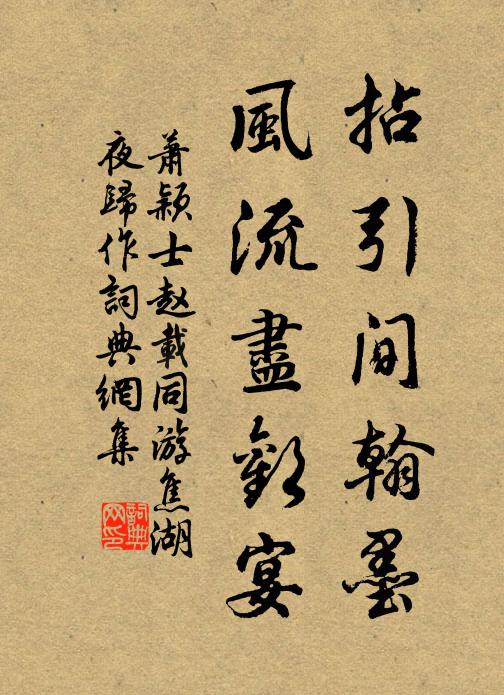 拈引間翰墨
風流盡歡宴
蕭穎士赵載同游焦湖
夜歸作詞典網集
詞典网印